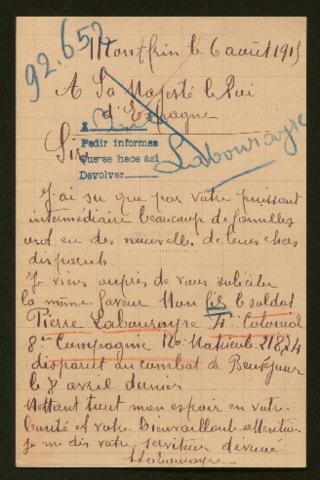 92.652
Montfrin le 6 août 1915
A Sa Majesté le Roi
d'Espagne
A
Pedir informes
Que se hace así
Devolver
Sire
Labourayre
J'ai su que par votre puissant
intermédiaire beaucoup de familles
ont eu des nouvelles de leurs chers
disparus
Je viens auprès de vous solliciter
la même faveur Mon fils le soldat
Pierre Labourayre 4e Colonial
8me Compagnie No Matricule 21824
disparut au combat de Beauséjour
le 8 avril dernier
Mettant tout mon espoir en votre
bonté et votre bienveillante attention
je me dis votre serviteur dévoué
Labourayre